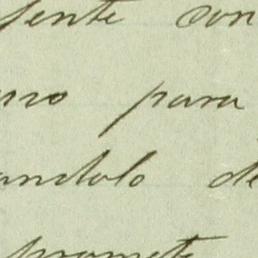 sente con
uno para
andolo de
promete